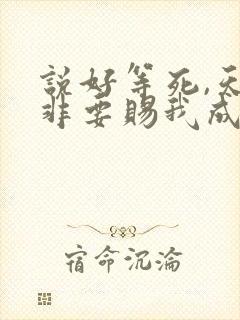 說好等死,天
非要賜我成
宿命沉淪